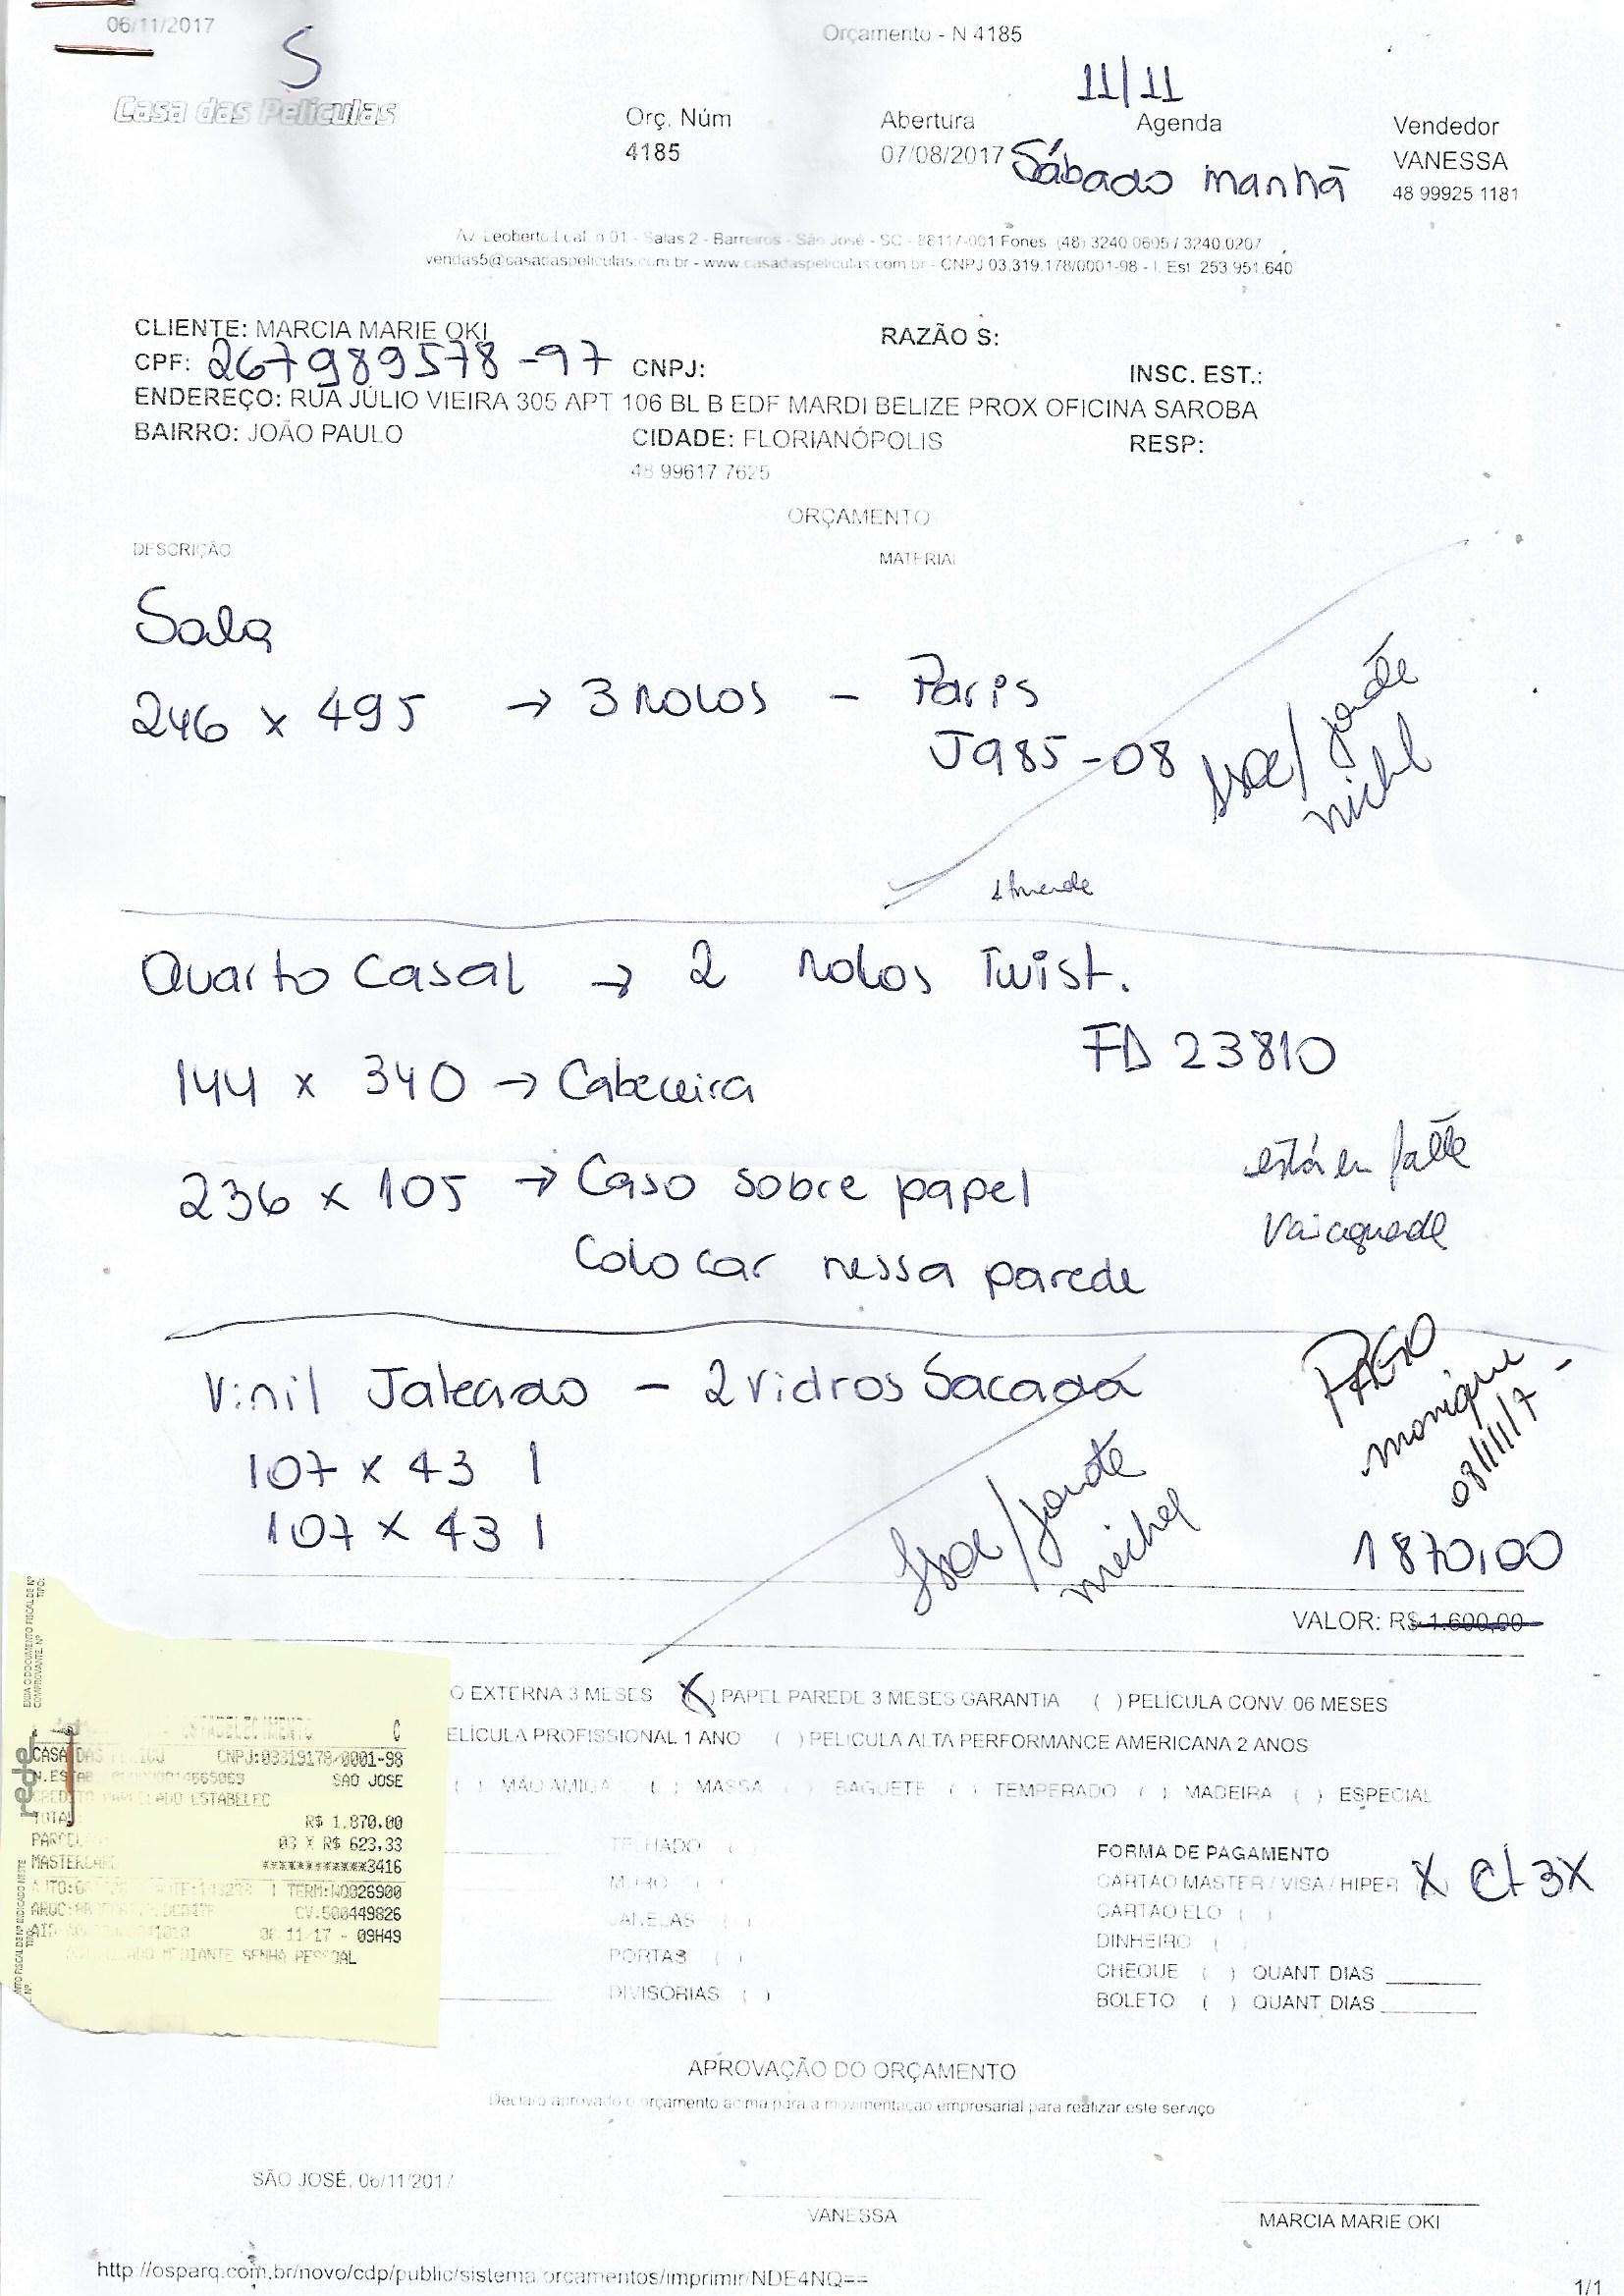 06/11/2017
Orçamento - N 4185
S
11/11
Casa das Películas
Orç. Núm
Abertura
Agenda
Vendedor
4185
07/08/2017
Sábado manhã
VANESSA
48 99925 1181
Av. Leoberto Leal, n 01 - Salas 2 - Barreiros - São José - SC - 88117-001 Fones (48) 3240.0605 / 3240.0207
vendas5@casadaspeliculas.com.br - www.casadaspeliculas.com.br - CNPJ 03.319.178/0001-98 - I. Est 253.951.640
CLIENTE: MARCIA MARIE OKI
RAZÃO S:
CPF: 267989578-97
CNPJ:
INSC. EST.:
ENDEREÇO: RUA JÚLIO VIEIRA 305 APT 106 BL B EDF MARDI BELIZE PROX OFICINA SAROBA
BAIRRO: JOÃO PAULO
CIDADE: FLORIANÓPOLIS
RESP:
48 99617 7625
ORÇAMENTO
DESCRIÇÃO
MATERIAL
Sala
246 x 495 → 3 rolos - Paris
J985-08
michel
Quarto Casal → 2 rolos Twist.
FD 23810
144 x 340 → Cabeceira
236 x 105 → Caso sobre papel
está em falta
Colocar nessa parede
Vinil Jateado - 2 Vidros Sacada
PAGO
monique
08/11/17
107 x 43 1
107 x 43 1
michel
1870,00
VALOR: R$ 1.600,00
O EXTERNA 3 MESES (X) PAPEL PAREDE 3 MESES GARANTIA ( ) PELÍCULA CONV. 06 MESES
ELÍCULA PROFISSIONAL 1 ANO ( ) PELICULA ALTA PERFORMANCE AMERICANA 2 ANOS
( ) MÃO AMIGA ( ) MASSA ( ) BAGUETE ( ) TEMPERADO ( ) MADEIRA ( ) ESPECIAL
TELHADO (
MURO (
JANELAS ( )
PORTAS ( )
DIVISÓRIAS ( )
FORMA DE PAGAMENTO
CARTÃO MASTER / VISA / HIPER X Ct 3X
CARTÃO ELO ( )
DINHEIRO (
CHEQUE ( ) QUANT. DIAS
BOLETO ( ) QUANT. DIAS
rede
ESTABELECIMENTO C
CASA DAS CNPJ:03319178/0001-98
SAO JOSE
CREDITO PARCELADO ESTABELEC
TOTAL R$ 1.870,00
03 X R$ 623,33
MASTERCARD ************3416
TERM:
CV:500449826
11/17 - 09H49
MEDIANTE SENHA PESSOAL
APROVAÇÃO DO ORÇAMENTO
Declaro aprovado o orçamento acima para a movimentação empresarial para realizar este serviço
SÃO JOSÉ, 06/11/2017
VANESSA
MARCIA MARIE OKI
http://osparq.com.br/novo/cdp/public/sistema/orcamentos/imprimir/NDE4NQ==
1/1